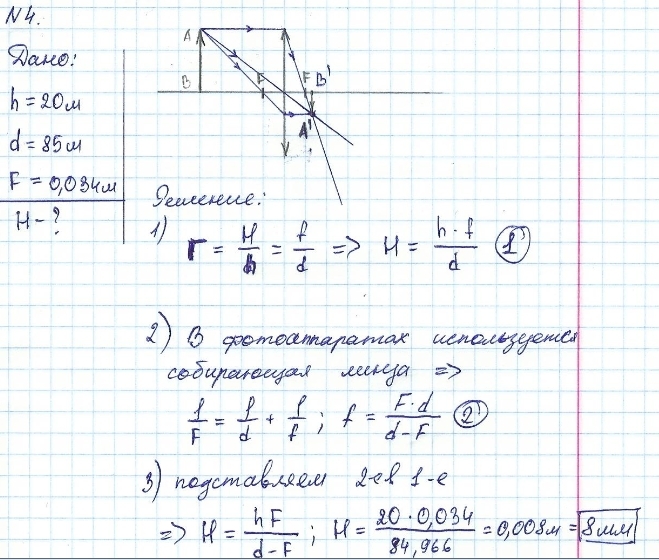 N 4.
Дано:
h = 20 м
d = 85 м
F = 0,034 м
H - ?
A
B
F
F B'
A'
Решение:
1) Г = H/h = f/d => H = h·f/d (1')
2) В фотоаппаратах используется
собирающая линза =>
1/F = 1/d + 1/f ; f = F·d/d-F (2')
3) подставляем 2-е в 1-е
=> H = hF/d-F ; H = 20·0,034/84,966 = 0,008 м = 8 мм